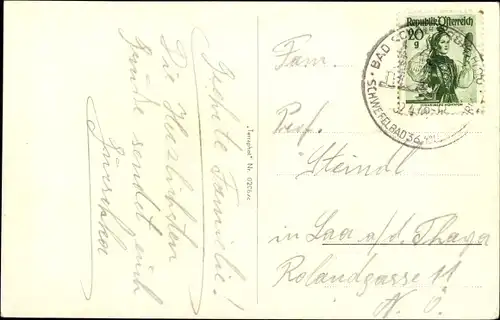 Geehrte Familie!
Die Herzlichsten
Grüße sendet euch
Fam.
Prof.
Steindl
in Laa a/d. Thaya
Rolandgasse 11
N. Ö.
Republik Österreich
20
g
BAD
SCHWEFELBAD 36,
"Tempha" Nr.